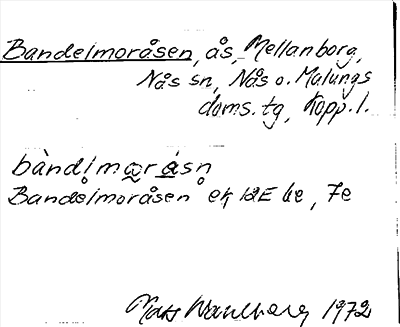 Bandelmoråsen, ås, Mellanborg,
Nås sn, Nås o. Malungs
doms. tg, Kopp. l.
bàndl̥mar̰ásn̥
Bandelmoråsen ek 12E 4e, 7e
Mats Wahlberg 1972